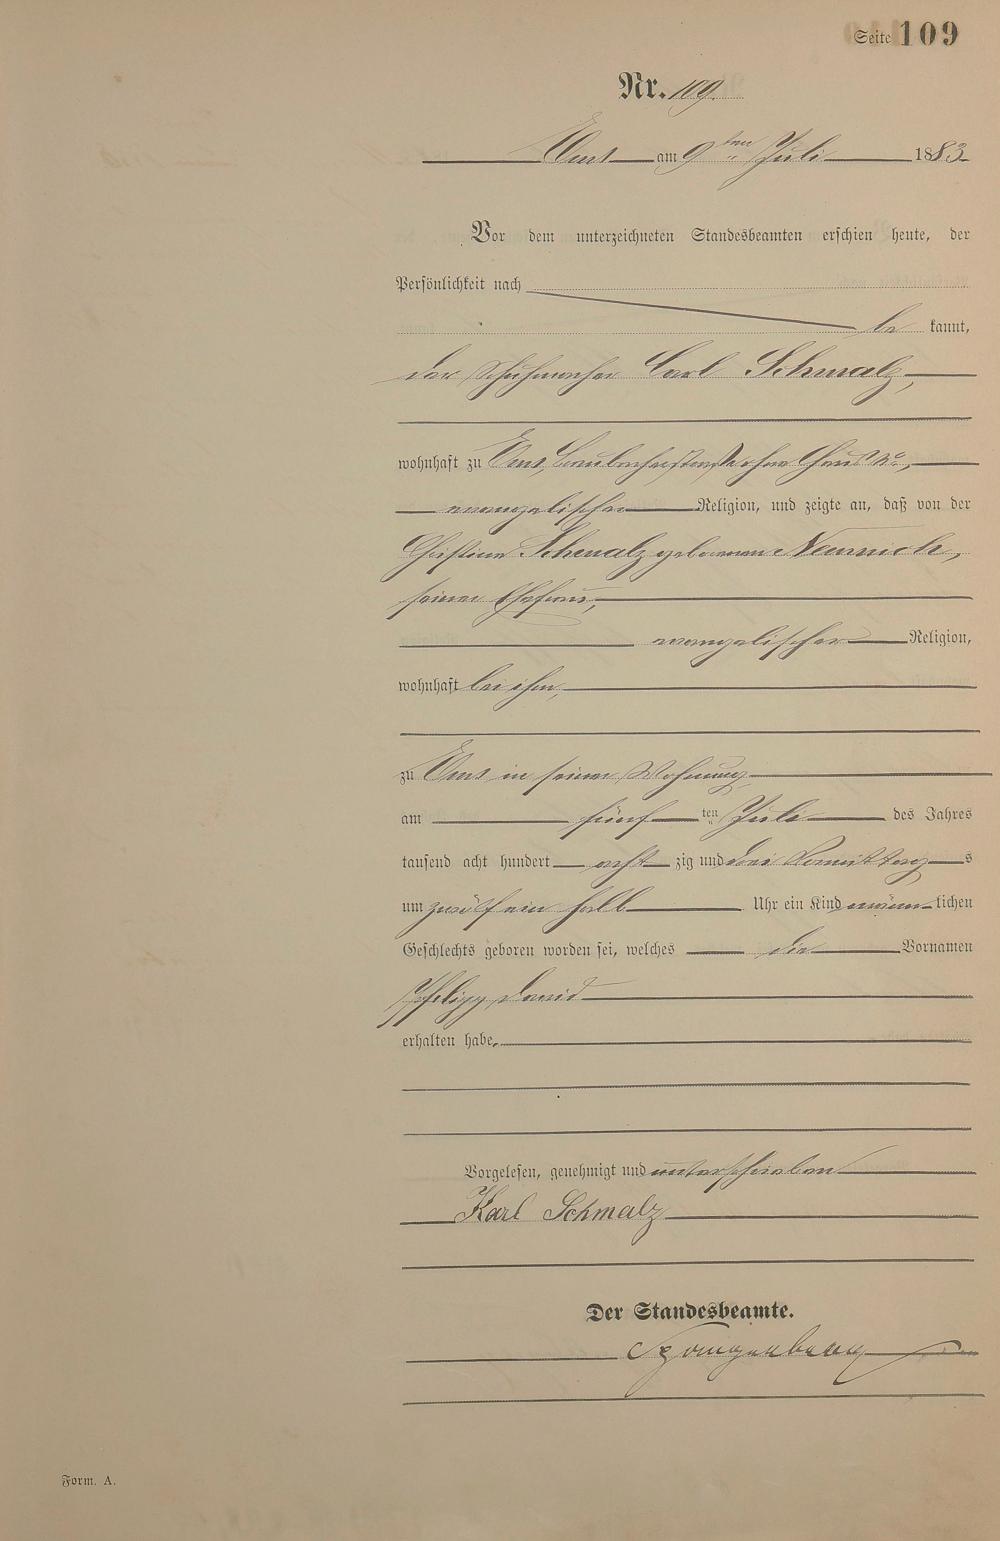 Seite 109
Nr. 109.
Ems am 9ten Juli 1883
Vor dem unterzeichneten Standesbeamten erschien heute, der
Persönlichkeit nach
be kannt,
der Schuhmacher Carl Schmalz,
wohnhaft zu Ems, ohne Haus No,
evangelischer Religion, und zeigte an, daß von der
Christine Schmalz geborenen Neunich,
seiner Ehefrau,
evangelischer Religion,
wohnhaft bei ihm,
zu Ems in seiner Wohnung
am fünf ten Juli des Jahres
tausend acht hundert acht zig und drei Vormittag s
um zwölf ein halb Uhr ein Kind männ lichen
Geschlechts geboren worden sei, welches die Vornamen
Philipp David
erhalten habe.
Vorgelesen, genehmigt und unterschrieben
Karl Schmalz
Der Standesbeamte.
Form. A.